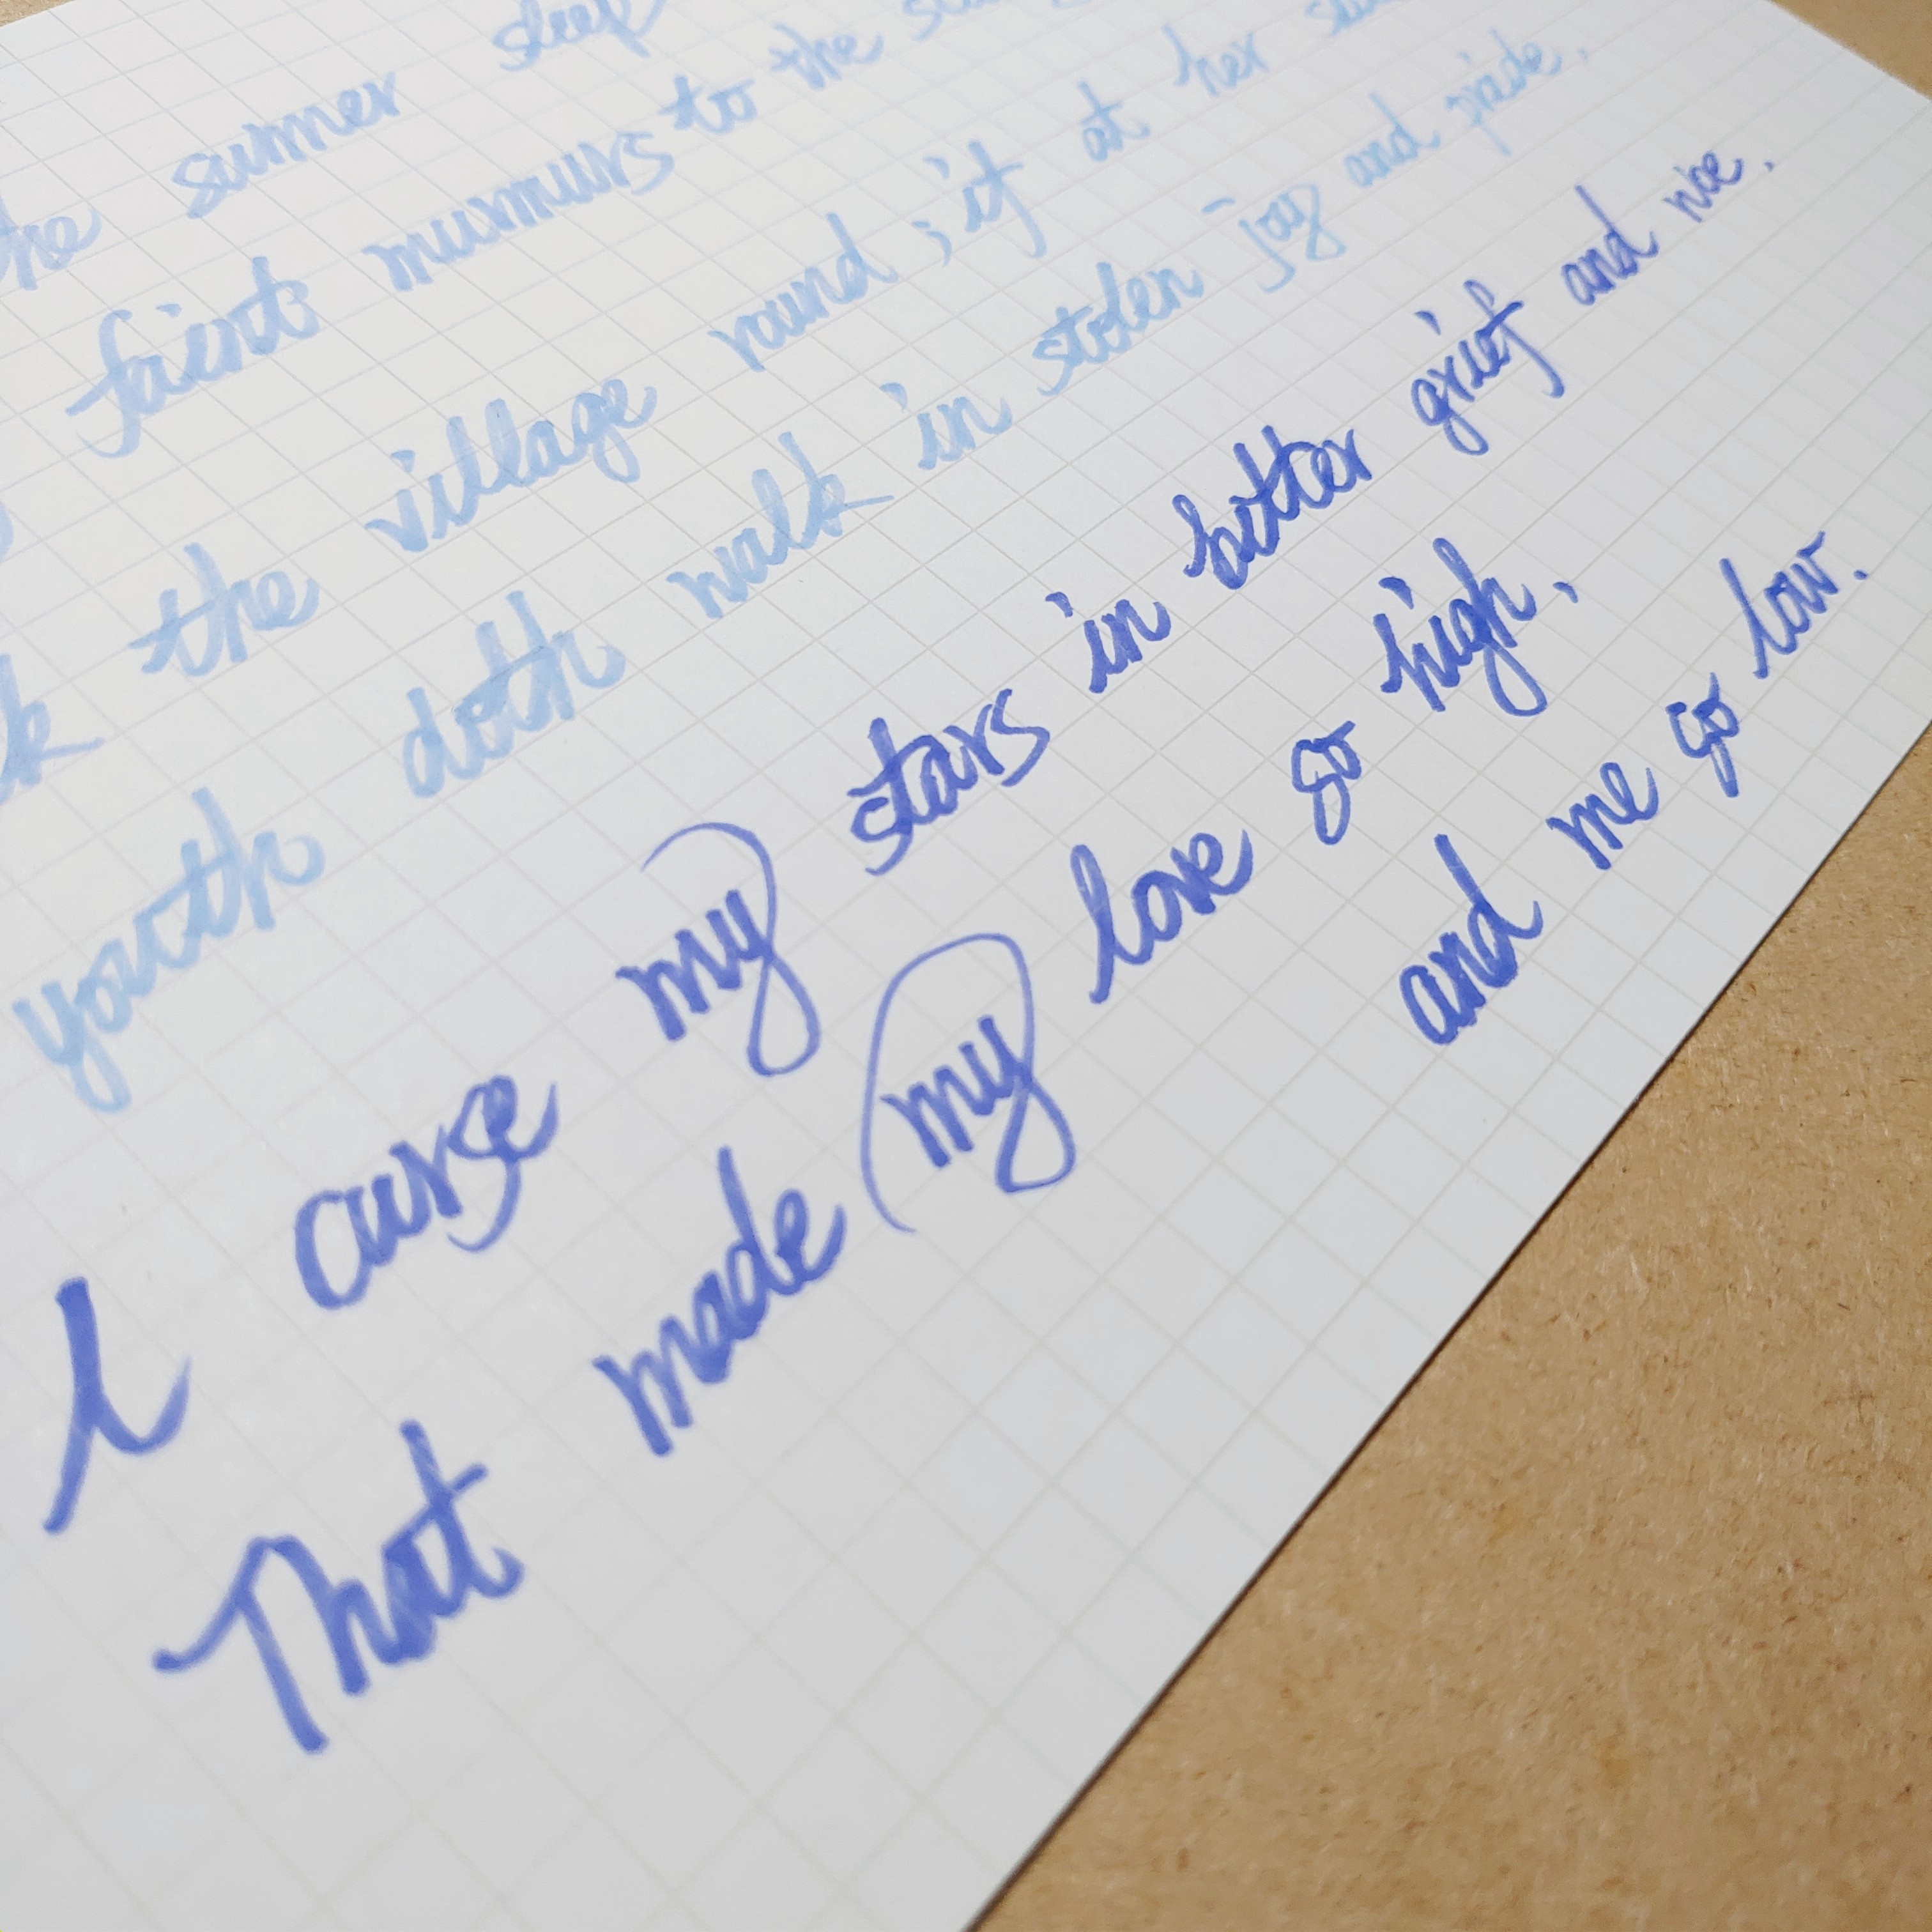 the summer sleep
faint murmurs to the
the village round ; if at her
youth doth walk in stolen joy and pride.
I curse my stars in bitter grief and woe,
That made my love go high,
and me go low.